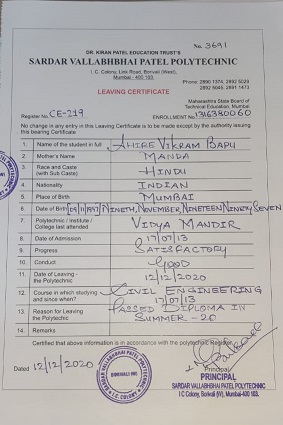 No. 3691
DR. KIRAN PATEL EDUCATION TRUST'S
SARDAR VALLABHBHAI PATEL POLYTECHNIC
I. C. Colony, Link Road, Borivali (West),
Mumbai-400 103.
Phone: 2890 1374, 2892 5029,
2892 5045, 2891 1473
LEAVING CERTIFICATE
Maharashtra State Board of
Technical Education, Mumbai
Register No. CE-219
ENROLLMENT No. 1316380060
No change in any entry in this Leaving Certificate is to be made except by the authority issuing
this bearing Certificate
1. Name of the student in full AHIRE VIKRAM BAPU
2. Mother's Name MANDA
3. Race and Caste (with Sub Caste) HINDU
4. Nationality INDIAN
5. Place of Birth MUMBAI
6. Date of Birth 09/11/1997 NINETH, NOVEMBER, NINETEEN NINETY SEVEN
7. Polytechnic / Institute / College last attended VIDYA MANDIR
8. Date of Admission 17/07/13
9. Progress SATISFACTORY
10. Conduct GOOD
11. Date of Leaving the Polytechnic 12/12/2020
12. Course in which studying and since when? CIVIL ENGINEERING 17/07/13
13. Reason for Leaving the Polytechnic PASSED DIPLOMA IN SUMMER-20
14. Remarks
Certified that above information is in accordance with the polytechnic Register.
Dated 12/12/2020
SARDAR VALLABHBHAI PATEL POLYTECHNIC
BORIVALI (W)
I. C. COLONY
Principal
PRINCIPAL
SARDAR VALLABHBHAI PATEL POLYTECHNIC
I C Colony, Borivali (W), Mumbai-400 103.